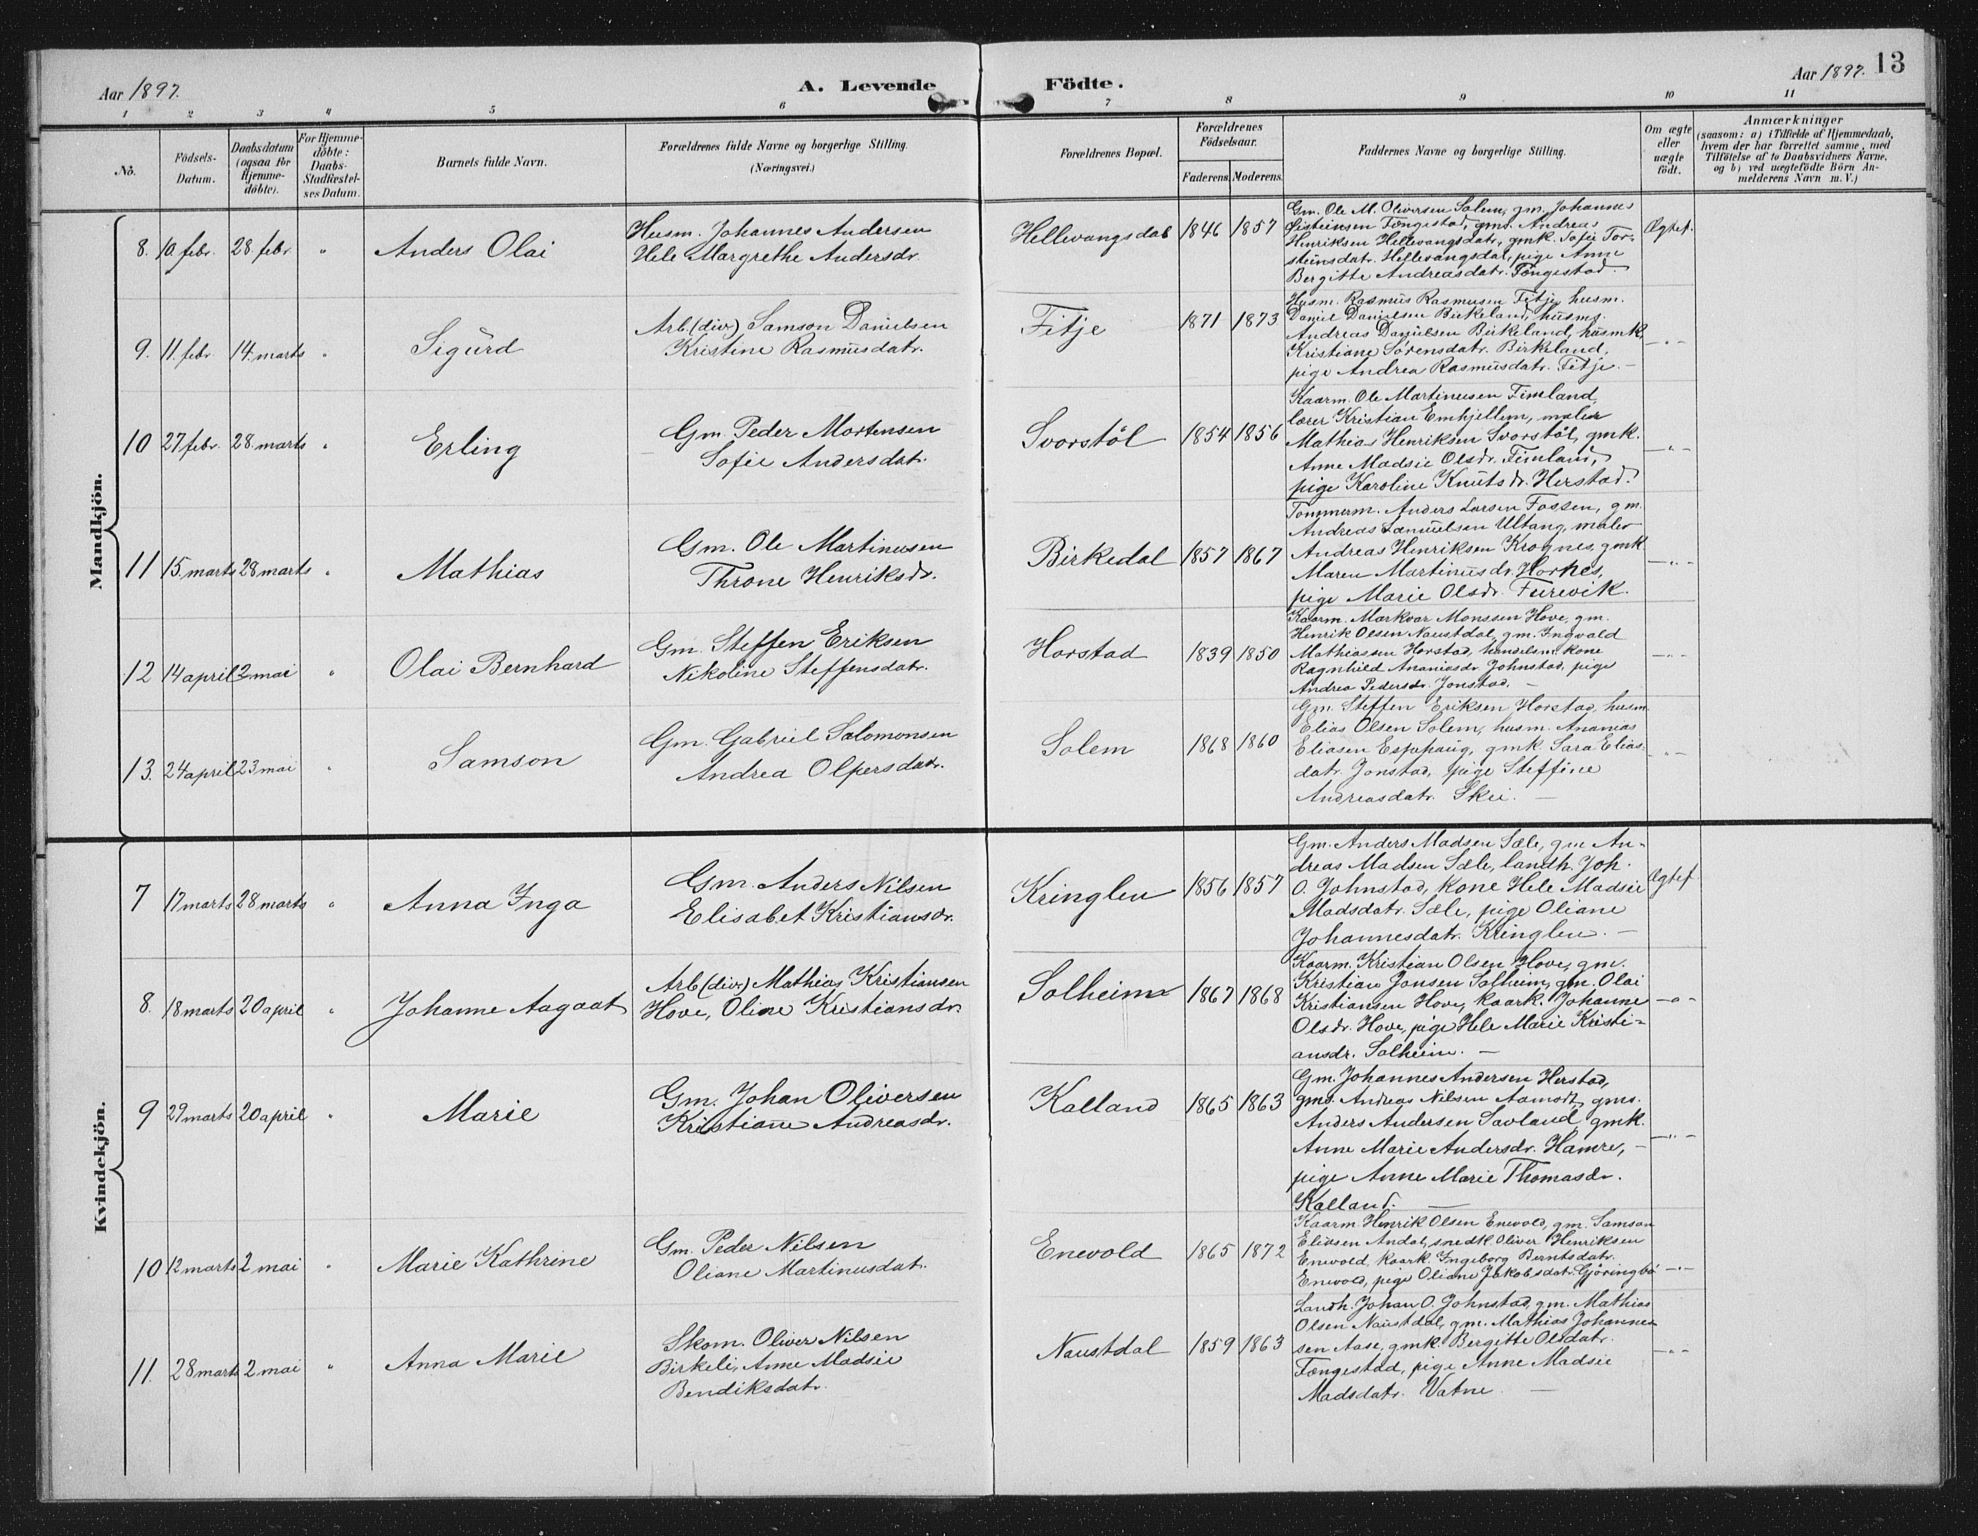 Aar 1897. A. Levende Födte. Aar 1897. 13
1 2 3 4 5 6 7 8 9 10 11
No.
Födsels-
Datum.
Daabsdatum
(ogsaa for
Hjemme-
döbte).
For Hjemme-
döbte:
Daabs-
Stadfæstel-
ses Datum.
Barnets fulde Navn.
Forældrenes fulde Navne og borgerlige Stilling.
(Næringsvei.)
Forældrenes Bopæl.
Forældrenes
Födselsaar.
Faderens. Moderens.
Faddernes Navne og borgerlige Stilling.
Om ægte
eller
uægte
födt.
Anmærkninger
(saasom: a) i Tilfælde af Hjemmedaab,
hvem der har forrettet samme, med
Tilföielse af to Daabsvidners Navne,
og b) ved uægtefödte Börn An-
melderens Navn m. V.)
Mandkjön.
8. 10 febr. 28 febr. " Anders Olai
Husm. Johannes Andersen
Hele Margrethe Andersdr.
Hellevangsdal 1846 1857
Gm. Ole M. Oliversen Solem, gm. Johannes
Tængestad, gms. Andreas
Henriksen Hellevangsdatr, gmk. Sofie Tor-
steinsdatr. Hellevangsdal, pige Anne
Bergitte Andreasdatr. Tængestad.
Ægtef.
9. 11. febr 14. marts " Sigurd
Arb. (div.) Samson Danielsen
Kristine Rasmusdatr.
Fitje 1871 1873
Husm. Rasmus Rasmusen Fitje, husm.
Daniel Danielsen Birkeland, husms.
Andreas Danielsen Birkeland, husmk.
Kristiane Sørensdatr. Birkeland,
pige Andrea Rasmusdatr. Fitje. —
— " —
10 27 febr. 28 marts " Erling
Gm. Peder Mortensen
Sofie Andersdatr.
Svorstöl 1854 1856
Kaarm. Ole Martinusen Fimland,
lærer Kristian Emhjellem, maler
Mathias Henriksen Svorstöl, gmk.
Anne Madsie Olsdr. Fimland,
pige Karoline Knutsdr. Herstad.
— " —
11 15 marts 28 marts " Mathias
Gm. Ole Martinusen
Throne Henriksdr.
Birkedal 1857 1867
Tömmerm. Anders Larsen Fossen, gm.
Andreas Samuelsen Ullang, maler
Andreas Henriksen Krognes, gmk.
Maren Martinusdr. Hornes,
pige Marie Olsdr. Furevik.
— " —
12 14 april 2 mai " Olai Bernhard
Gm. Steffen Eriksen
Nikoline Steffensdatr.
Horstad 1839 1850
Kaarm. Markvar Monssen Hove, gm.
Henrik Olsen Naustdal, gm. Ingvald
Mathiassen Horstad, handelsm. kone
Ragnhild Ananiasdr. Johnstad, pige
Andrea Pedersdr. Jonstad. —
— " —
13. 24 april 23 mai " Samson
Gm. Gabriel Salomonsen
Andrea Olpersdatr.
Solem 1868 1860
Gm. Steffen Eriksen Horstad, husm.
Elias Olsen Solem, husm. Ananias
Eliasen Espehaug, gmk. Sara Elias-
datr. Jonstad, pige Steffine
Andreasdatr. Skei. —
— " —
Kvindekjön.
7 17 marts 28 marts " Anna Inga
Gm. Anders Nilsen
Elisabet Kristiansdr.
Kringlen 1856 1857
Gm. Anders Madsen Sæle, gm An-
dreas Madsen Sæle, landh. Joh.
O. Johnstad, kone Hele Madsie
Madsdatr. Sæle, pige Oliane
Johannesdatr. Kringlen. —
Ægtef.
8. 18 marts 20 april " Johanne Aagaat
Arb. (div.) Mathias Kristiansen
Hove, Oline Kristiansdr.
Solheim 1867 1868
Kaarm. Kristian Olsen Hove, gm.
Kristian Jonsen Solheim, gm. Olai
Kristiansen Hove, kaark. Johanne
Olsdr. Hove, pige Hele Marie Kristi-
ansdr. Solheim. —
— " —
9 29 marts 20 april " Marie
Gm. Johan Oliversen
Kristiane Andreasdr.
Kalland 1865 1863
Gm. Johannes Andersen Herstad,
gms. Andreas Nilsen Aamodt, gms.
Anders Andersen Savland, gmk.
Anne Marie Andersdr. Hamre, —
pige Anne Marie Thomasdr.
Kalland. —
— " —
10 12 marts 2 mai " Marie Kathrine
Gm. Peder Nilsen
Oliane Martinusdatr.
Enevold 1865 1872
Kaarm. Henrik Olsen Enevold, gm. Samson
Eliasen Andal, snedk. Oliver Henriksen
Enevold, kaark. Ingeborg Berntsdatr.
Enevold, pige Oliane Jakobsdatr. Gjöringbö
— " —
11. 28 marts 2 mai " Anna Marie
Skom. Oliver Nilsen
Birkeli, Anne Madsie
Bendiksdatr.
Naustdal 1859 1863
Landh. Johan O. Johnstad, gm. Mathias
Olsen Naustdal, gm. Mathias Johannes-
sen Aase, gmk. Bergitte Olsdatr.
Tængestad, pige Anne Madsie
Madsdatr. Vatne. —
— " —